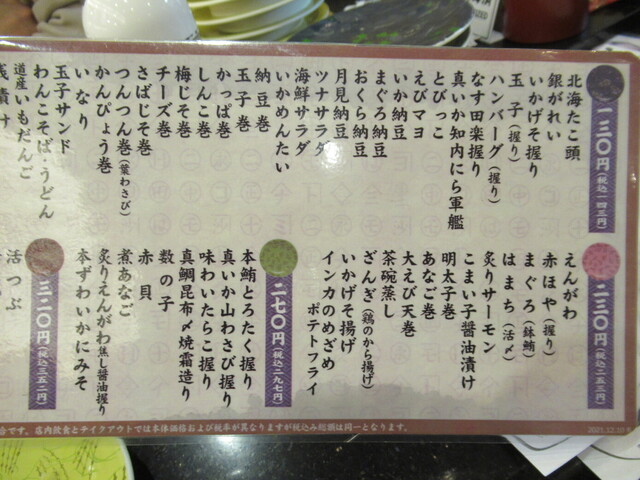 一三〇円(税込一四三円)
北海たこ頭
銀がれい
いかげそ握り
玉子(握り)
ハンバーグ(握り)
なす田楽握り
真いか知内にら軍艦
とびっこ
えびマヨ
いか納豆
まぐろ納豆
おくら納豆
月見納豆
ツナサラダ
海鮮サラダ
いかめんたい
納豆巻
玉子巻
かっぱ巻
しんこ巻
梅じそ巻
チーズ巻
さばじそ巻
つんつん巻(葉わさび)
かんぴょう巻
いなり
玉子サンド
わんこそば・うどん
道産いもだんご
浅漬け
二三〇円(税込二五三円)
えんがわ
赤ほや(握り)
まぐろ(鉢鮪)
はまち(活〆)
炙りサーモン
こまい子醤油漬け
明太子巻
あなご巻
大えび天巻
茶碗蒸し
ざんぎ(鶏のから揚げ)
いかげそ揚げ
インカのめざめ
ポテトフライ
二七〇円(税込二九七円)
本鮪とろたく握り
真いか山わさび握り
味わいたらこ握り
真鯛昆布〆焼霜造り
数の子
赤貝
煮あなご
炙りえんがわ焦し醤油握り
本ずわいかにみそ
三二〇円(税込三五二円)
活つぶ
台です。店内飲食とテイクアウトでは本体価格および税率が異なりますが税込み総額は同一となります。